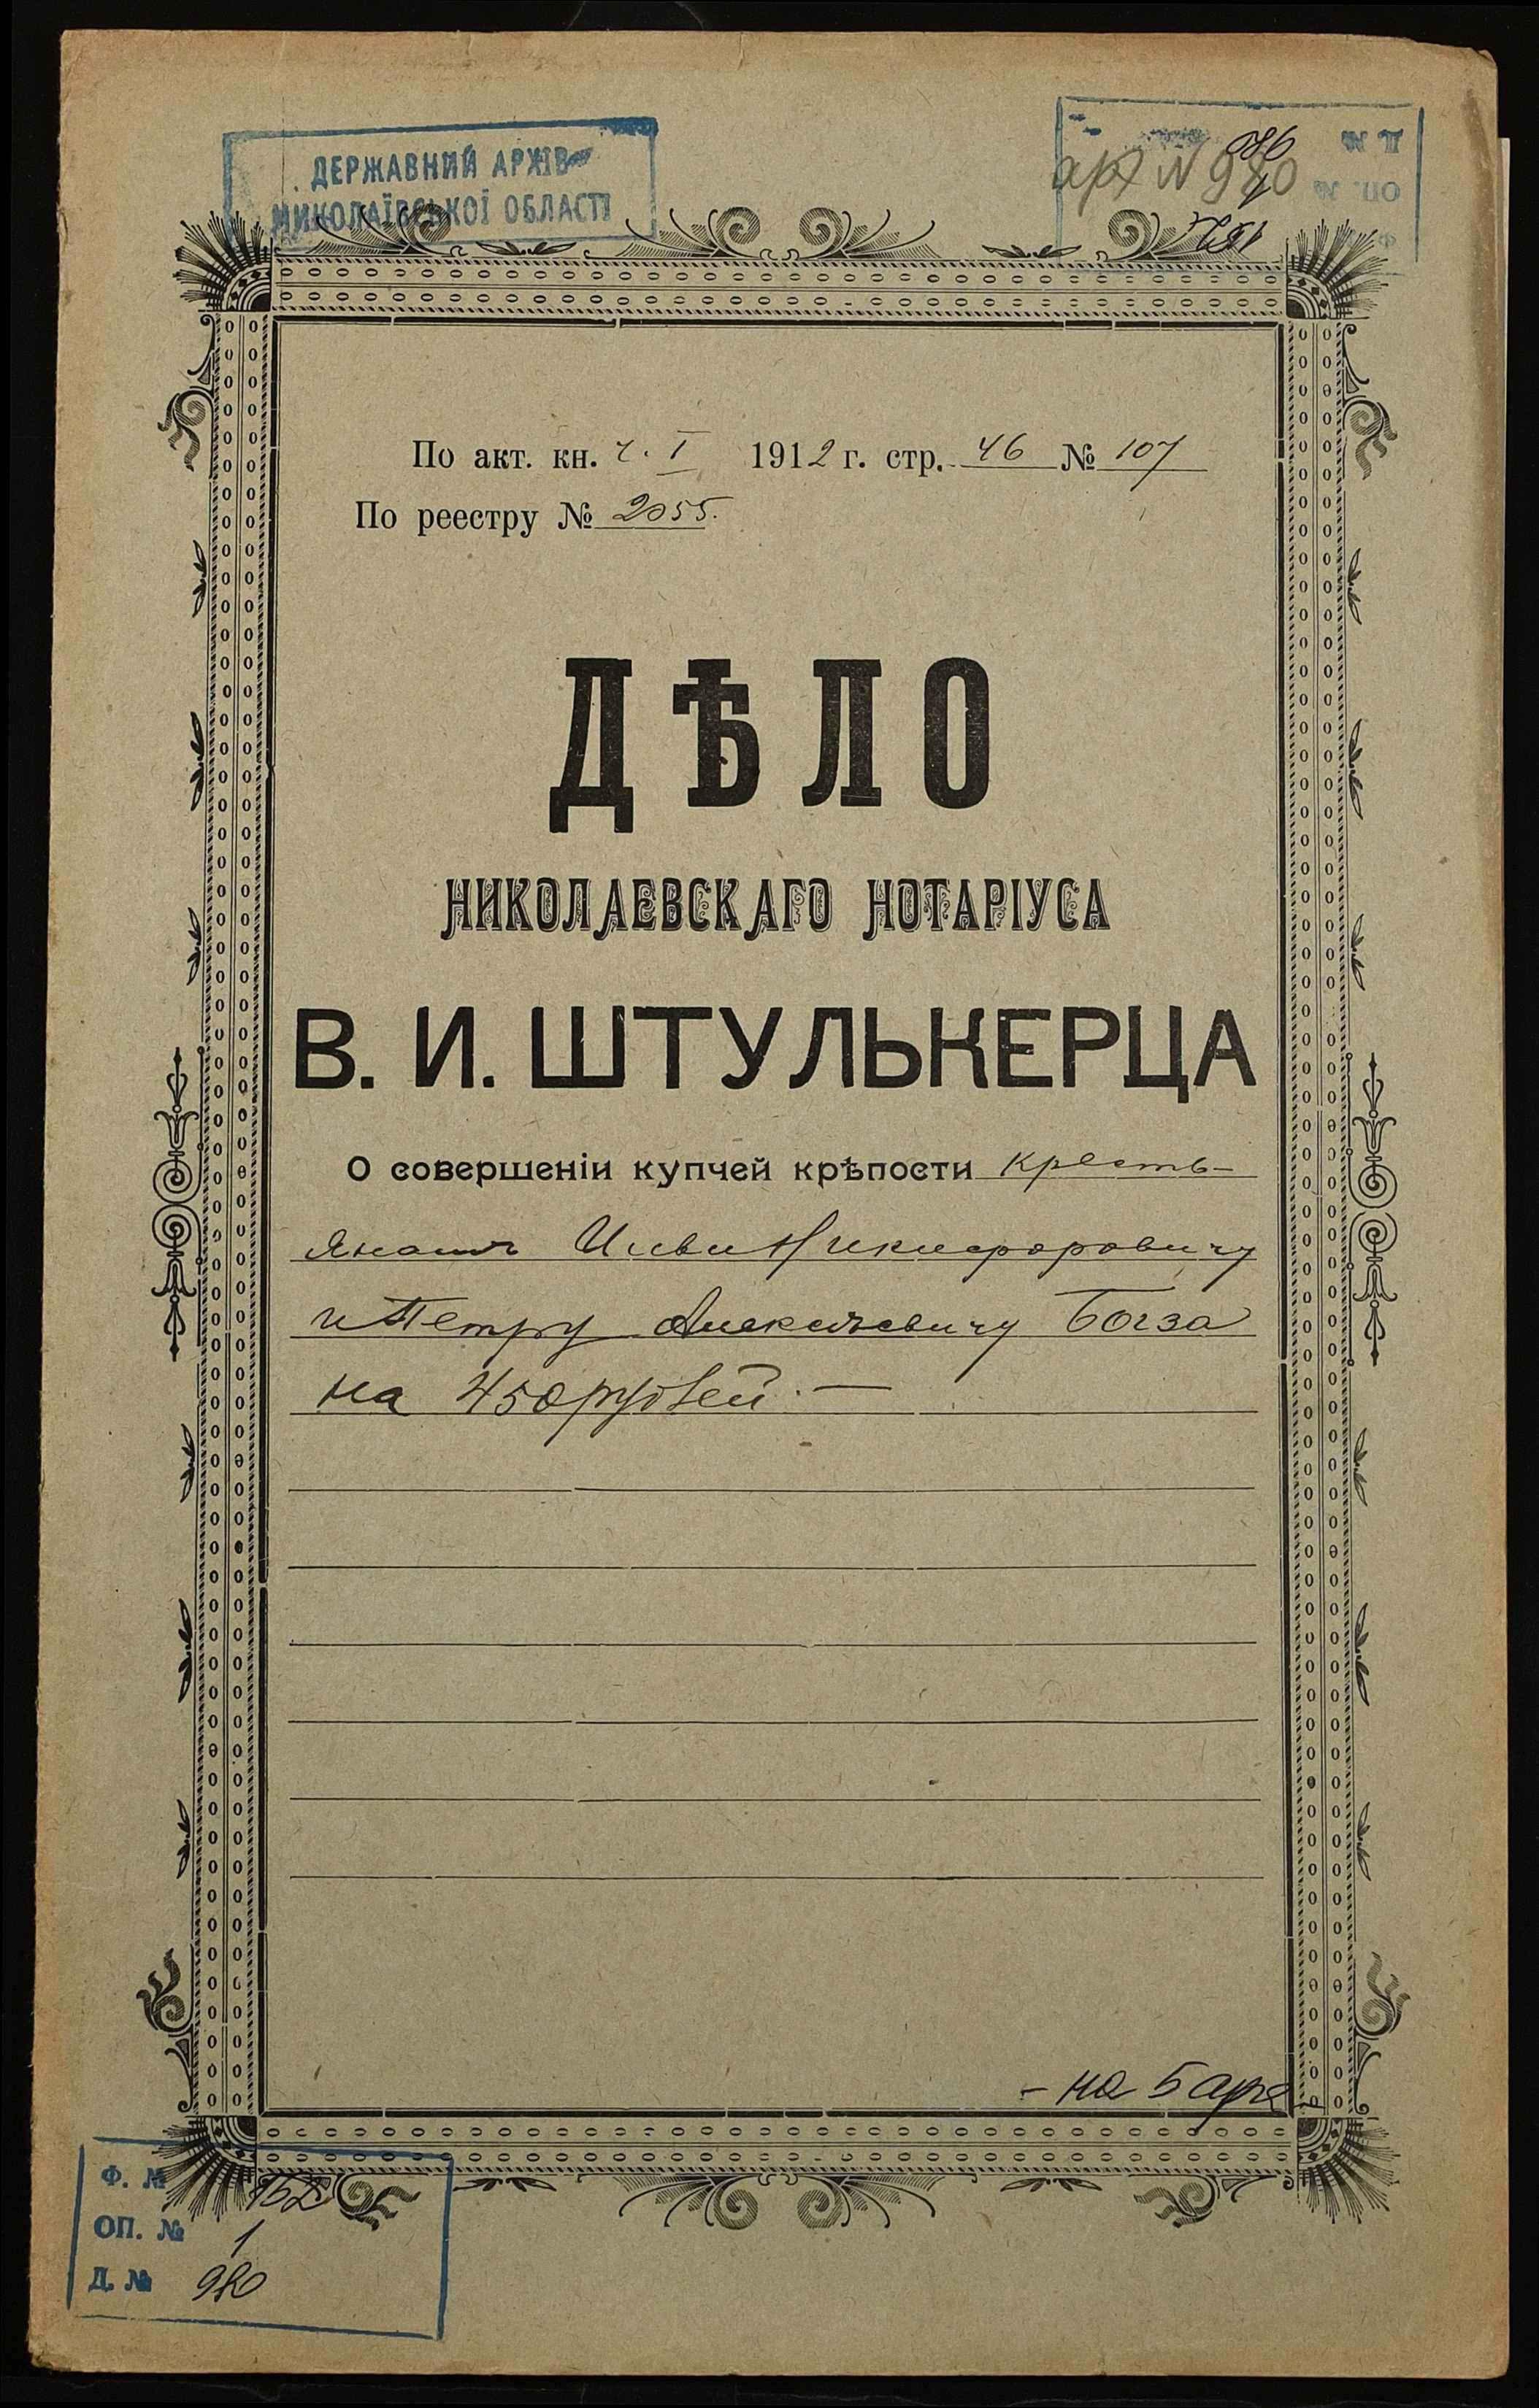 ДЕРЖАВНИЙ АРХІВ
МИКОЛАЇВСЬКОЇ ОБЛАСТІ
Д. № 980
ОП. № 1
Ф. 152
арх N 980
По акт. кн. ч. I 1912 г. стр. 46 № 107
По реестру № 2055.
ДѢЛО
НИКОЛАЕВСКАГО НОТАРІУСА
В. И. ШТУЛЬКЕРЦА
О совершеніи купчей крѣпости кресть-
янамъ Никифоровичу
и Петру Алексѣевичу Богза
на 450 рублей. —
- на 5 арк
Ф. № 152
ОП. № 1
Д. № 980